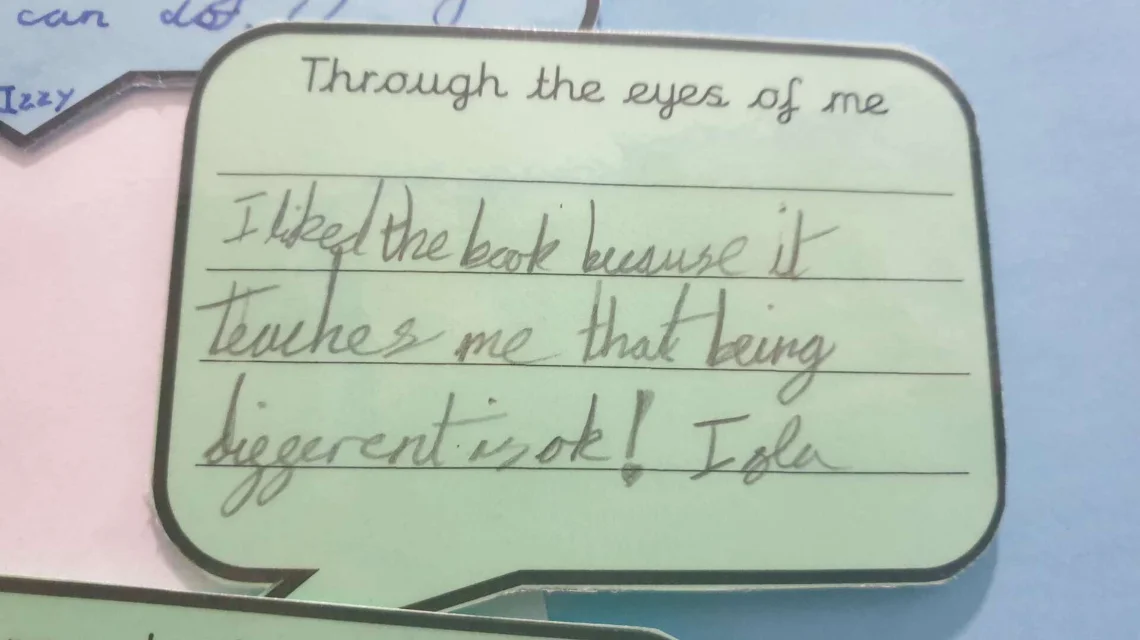 can dot.
Izzy
Through the eyes of me
I liked the book becuase it
Teaches me that being
different is ok! Isla